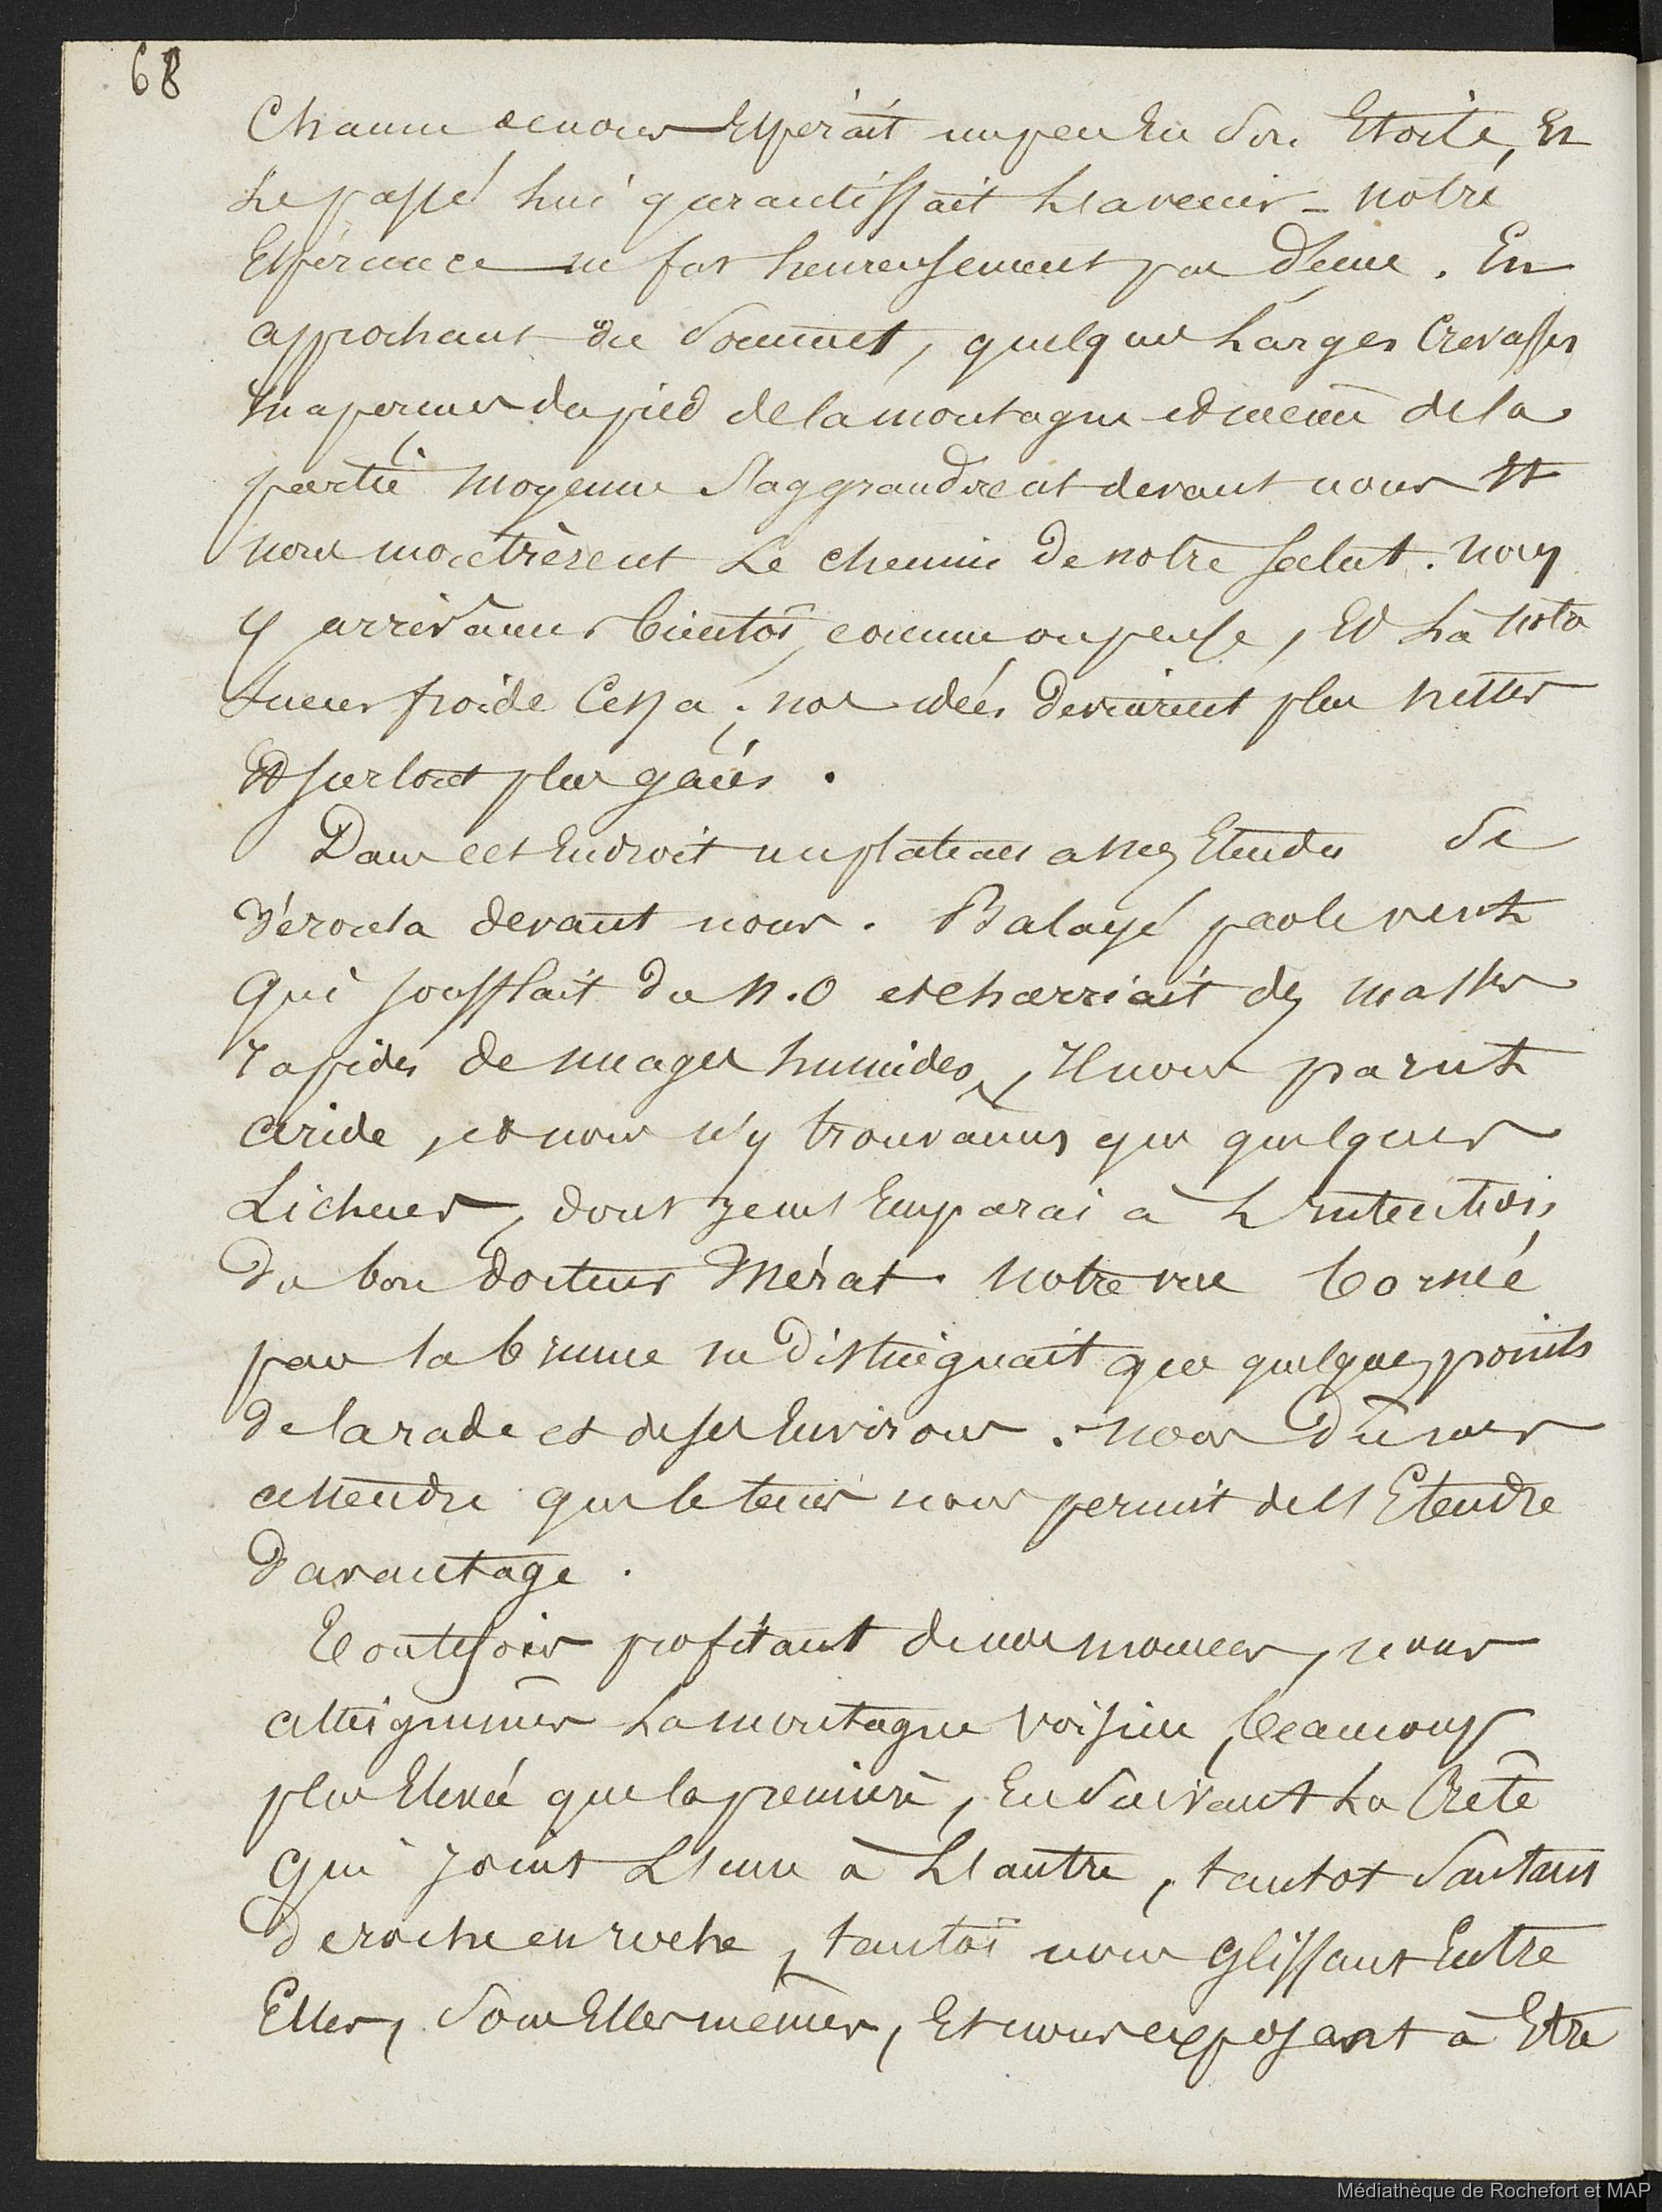 68
Chacun de nous Espérait un peu En Son Etoile, Et
Le passé lui garantissait L'avenir _ notre
Espérance ne fut heureusement pas déçue. En
approchant du Sommet, quelques Larges Crevasses
Inapercues du pied de la montagne et même de la
partie moyenne S'aggrandirent devant nous Et
nous montrèrent Le chemin de notre salut. nous
y arrivâmes bientôt, comme on pense, Et Là notre
Sueur froide Cessa; nos idées devinrent plus nettes
Et surtout plus gaies.
Dans cet Endroit un plateau assez Etendu Se
déroula devant nous. Balayé par le vent
Qui soufflait du N.O et charriait des masses
rapides de nuages humides, Il nous parut
aride, et nous n'y trouvâmes que quelques
Lichens, dont je m'Emparai à L'Intention
du bon docteur Mérat. Notre vue bornée
par la brume ne distinguait que quelques points
de la rade et de ses Environs. nous Dûmes
attendre que le tems nous permit de l'Etendre
Davantage.
Toutefois profitant de nos momens, nous
atteignimes La montagne voisine, beaucoup
plus Elevée que la première, En Suivant La Crête
Qui joint L'une à L'autre, tantot Sautant
de roche en roche, tantôt nous glissant Entre
Elles, Sous Elles mêmes, Et nous exposant à Etre
Médiathèque de Rochefort et MAP